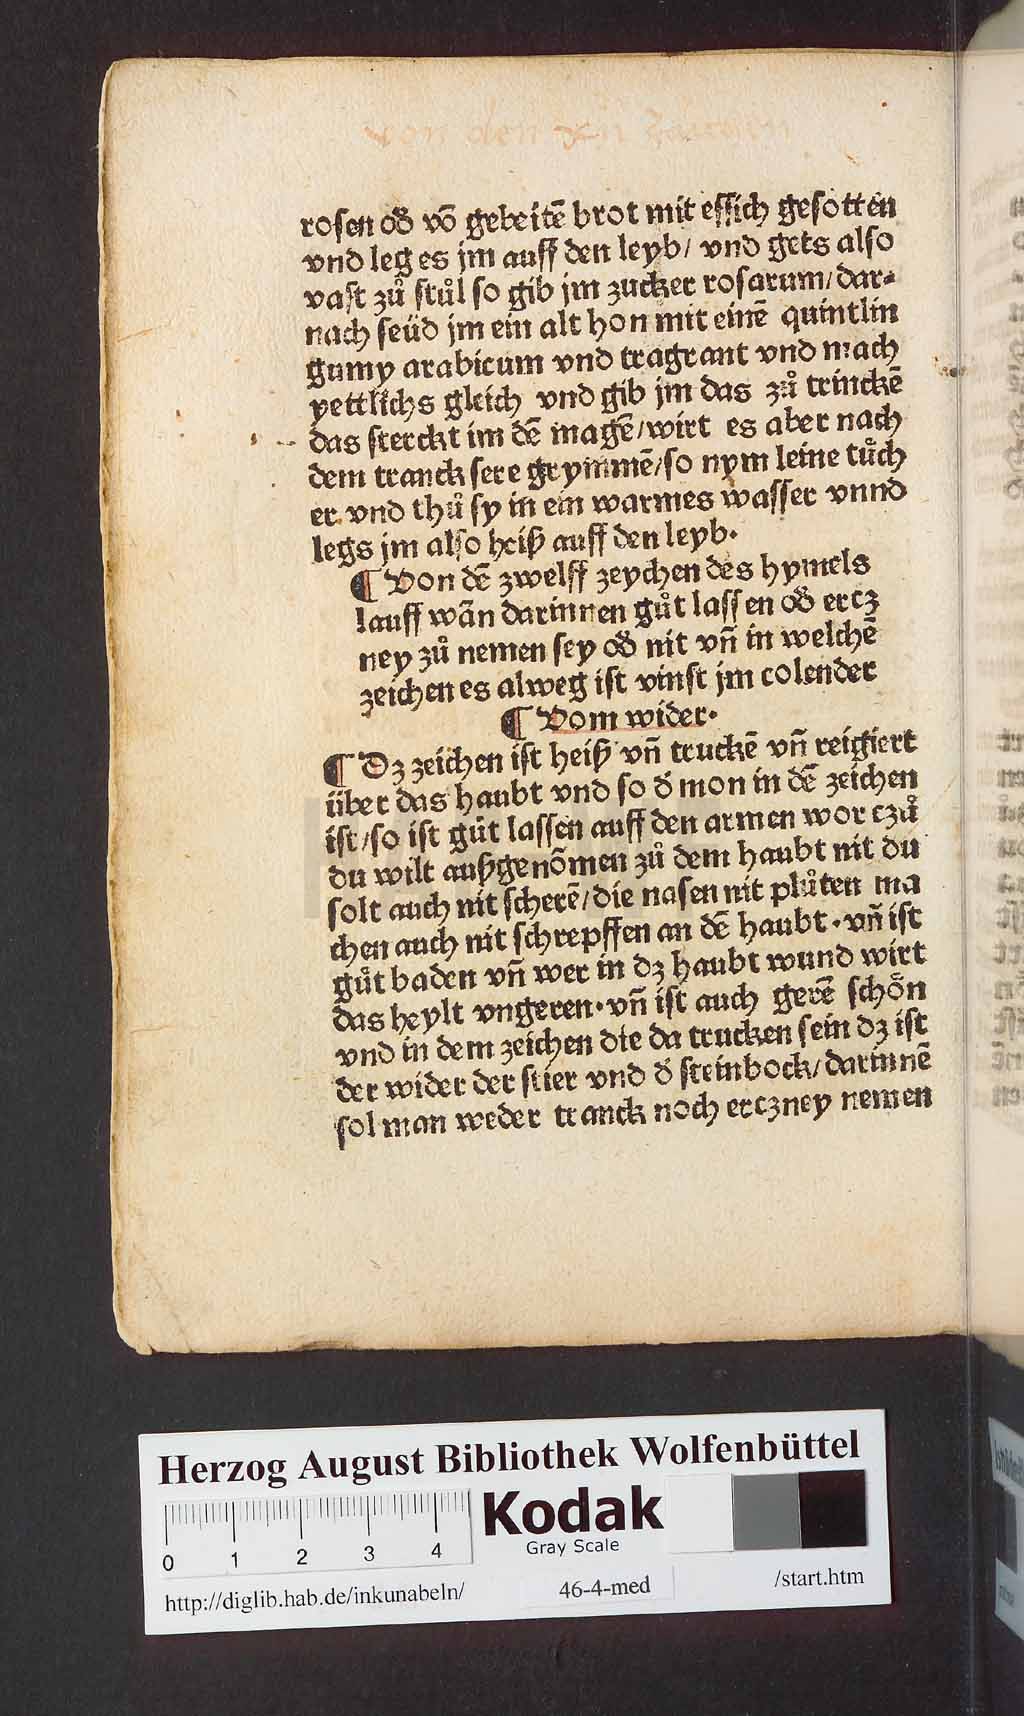 von den xii Zaichen
rosen oď vō gebeitē brot mit essich gesotten
vnd leg es jm auff den leyb/ vnd gets also
vast zů stůl so gib jm zucker rosarum/dar⸗
nach seüd jm ein alt hon mit einē quintlin
gumy arabicum vnd tragrant vnd mach
yettlichs gleich vnd gib jm das zů trinckē
das sterckt im dē magē/wirt es aber nach
dem tranck sere grymmē/so nym leine tůch
er vnd thů sy in ein warmes wasser vnnd
legs jm also heiß auff den leyb.
¶ Von dē zwelff zeychen des hymels
lauff wān darinnen gůt lassen oď ercz
ney zů nemen sey oď nit vn̄ in welchē
zeichen es alweg ist vinst jm colender
¶ Vom wider.
¶ Dz zeichen ist heiß vn̄ truckē vn̄ reigiert
über das haubt vnd so ď mon in dē zeichen
ist/so ist gůt lassen auff den armen wor czů
du wilt außgenōmen zů dem haubt nit du
solt auch nit scherē/die nasen nit plůten ma
chen auch nit schrepffen an dē haubt. vn̄ ist
gůt baden vn̄ wer in dz haubt wund wirt
das heylt vngeren. vn̄ ist auch gerē schön
vnd in dem zeichen die da trucken sein dz ist
der wider der stier vnd ď steinbock/darinnē
sol man weder tranck noch erczney nemen
Herzog August Bibliothek Wolfenbüttel
Kodak
Gray Scale
0 1 2 3 4
http://diglib.hab.de/inkunabeln/ 46-4-med /start.htm